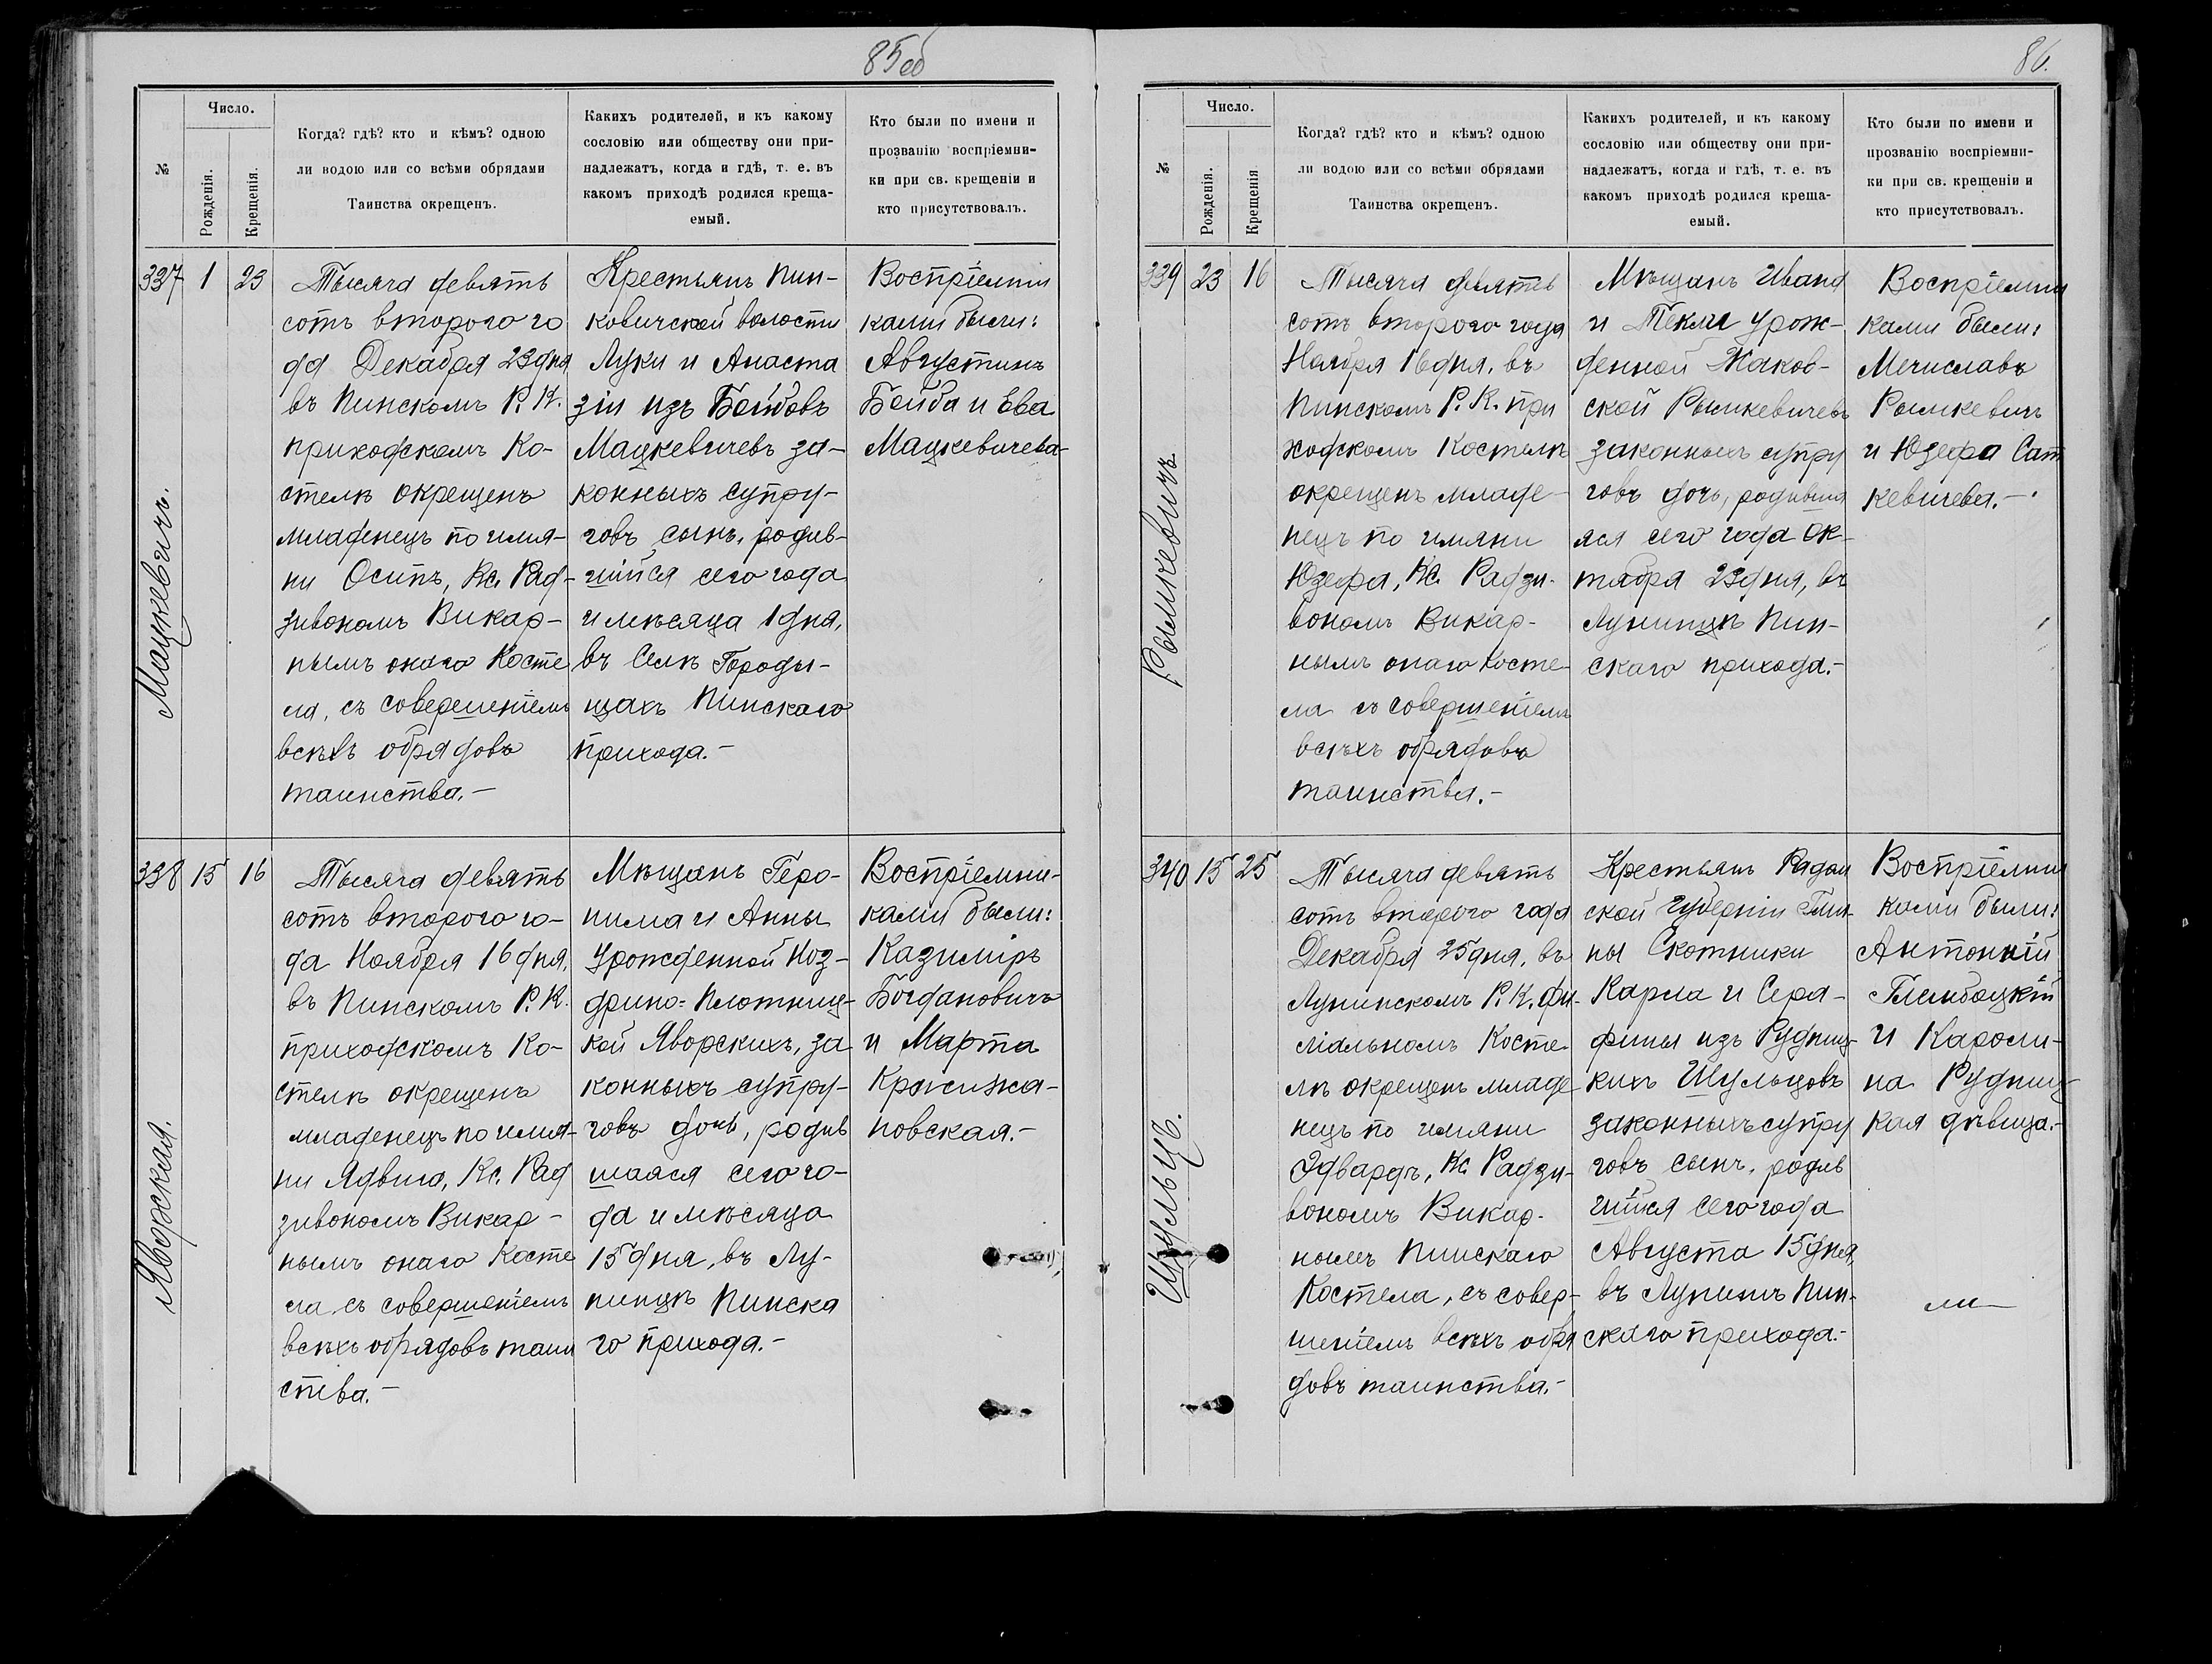 85 об
№
Число.
Рожденія.
Крещенія.
Когда? гдѣ? кто и кѣмъ? одною
ли водою или со всѣми обрядами
Таинства окрещенъ.
Какихъ родителей, и къ какому
сословію или обществу они при-
надлежатъ, когда и гдѣ, т. е. въ
какомъ приходѣ родился креща-
емый.
Кто были по имени и
прозванію воспріемни-
ки при св. крещеніи и
кто присутствовалъ.
337 1 23
Мацкевичъ.
Тысяча девять
сотъ второго го
да Декабря 23 дня
въ Пинскомъ Р. К.
приходскомъ Ко-
стелѣ окрещенъ
младенецъ по имя-
ни Осипъ, Кс. Рад-
зивономъ Викар-
нымъ онаго Косте
ла, съ совершеніемъ
всѣхъ обрядовъ
таинства.-
Крестьянъ Пин-
ковичской волости
Луки и Анаста
зіи изъ Бойдовъ
Мацкевичевъ за-
конныхъ супру-
говъ сынъ, родив-
шійся сего года
и мѣсяца 1 дня,
въ Селѣ Городи-
щахъ Пинскаго
прихода.-
Воспріемни
ками были:
Августинъ
Бойда и Ева
Мацкевичева-
338 15 16
Яворская.
Тысяча девять
сотъ второго го-
да Ноября 16 дня,
въ Пинскомъ Р. К.
приходскомъ Ко-
стелѣ окрещенъ
младенецъ по имя-
ни Ядвига, Кс. Рад
зивономъ Викар-
нымъ онаго Косте
ла съ совершеніемъ
всѣхъ обрядовъ таин
ства.-
Мѣщанъ Геро-
нима и Анны
урожденной Ноз-
дрино=Плотниц-
кой Яворскихъ, за
конныхъ супру-
говъ дочь, родив
шаяся сего го-
да и мѣсяца
15 дня, въ Лу-
нинцѣ Пинска
го прихода.-
Воспріемни-
ками были:
Казиміръ
Богдановичъ
и Марта
Кржижа-
новская.-
86.
№
Число.
Рожденія.
Крещенія
Когда? гдѣ? кто и кѣмъ? одною
ли водою или со всѣми обрядами
Таинства окрещенъ.
Какихъ родителей, и къ какому
сословію или обществу они при-
надлежатъ, когда и гдѣ, т. е. въ
какомъ приходѣ родился креща-
емый.
Кто были по имени и
прозванію воспріемни-
ки при св. крещеніи и
кто присутствовалъ.
339 23 16
Рымкевичъ
Тысяча девять
сотъ второго года
Ноября 16 дня, въ
Пинскомъ Р. К. при
ходскомъ Костелѣ
окрещенъ младе-
нецъ по имяни
Юзефа, Кс. Радзи-
вономъ Викар-
нымъ онаго Косте-
ла съ совершеніемъ
всѣхъ обрядовъ
таинства.-
Мѣщанъ Ивана
и Текли урож-
денной Жаков-
ской Рымкевичевъ
законныхъ супру
говъ дочь, родивша
яся сего года Ок-
тября 23 дня, въ
Лунинцѣ Пин-
скаго прихода.-
Воспріемни
ками были:
Мечиславъ
Рымкевичъ
и Юзефа Сат
кевичева.-
340 15 25
Шульцъ.
Тысяча девять
сотъ второго года
Декабря 25 дня, въ
Лунинскомъ Р. К. Фи-
ліальномъ Косте-
лѣ окрещенъ младе
нецъ по имяни
Эдвардъ, Кс. Радзи-
вономъ Викар-
нымъ Пинскаго
Костела, съ совер-
шеніемъ всѣхъ обря
довъ таинства.-
Крестьянъ Радом
ской Губерніи Гми-
ны Скотники
Карла и Сера-
фины изъ Рудниц-
кихъ Шульцовъ
законныхъ супру
говъ сынъ, родив
шійся сего года
Августа 15 дня,
въ Лунинѣ Пин-
скаго прихода.-
Воспріемни
ками были:
Антоній
Глембоцкій
и Кароли-
на Рудниц-
кая дѣвица.-